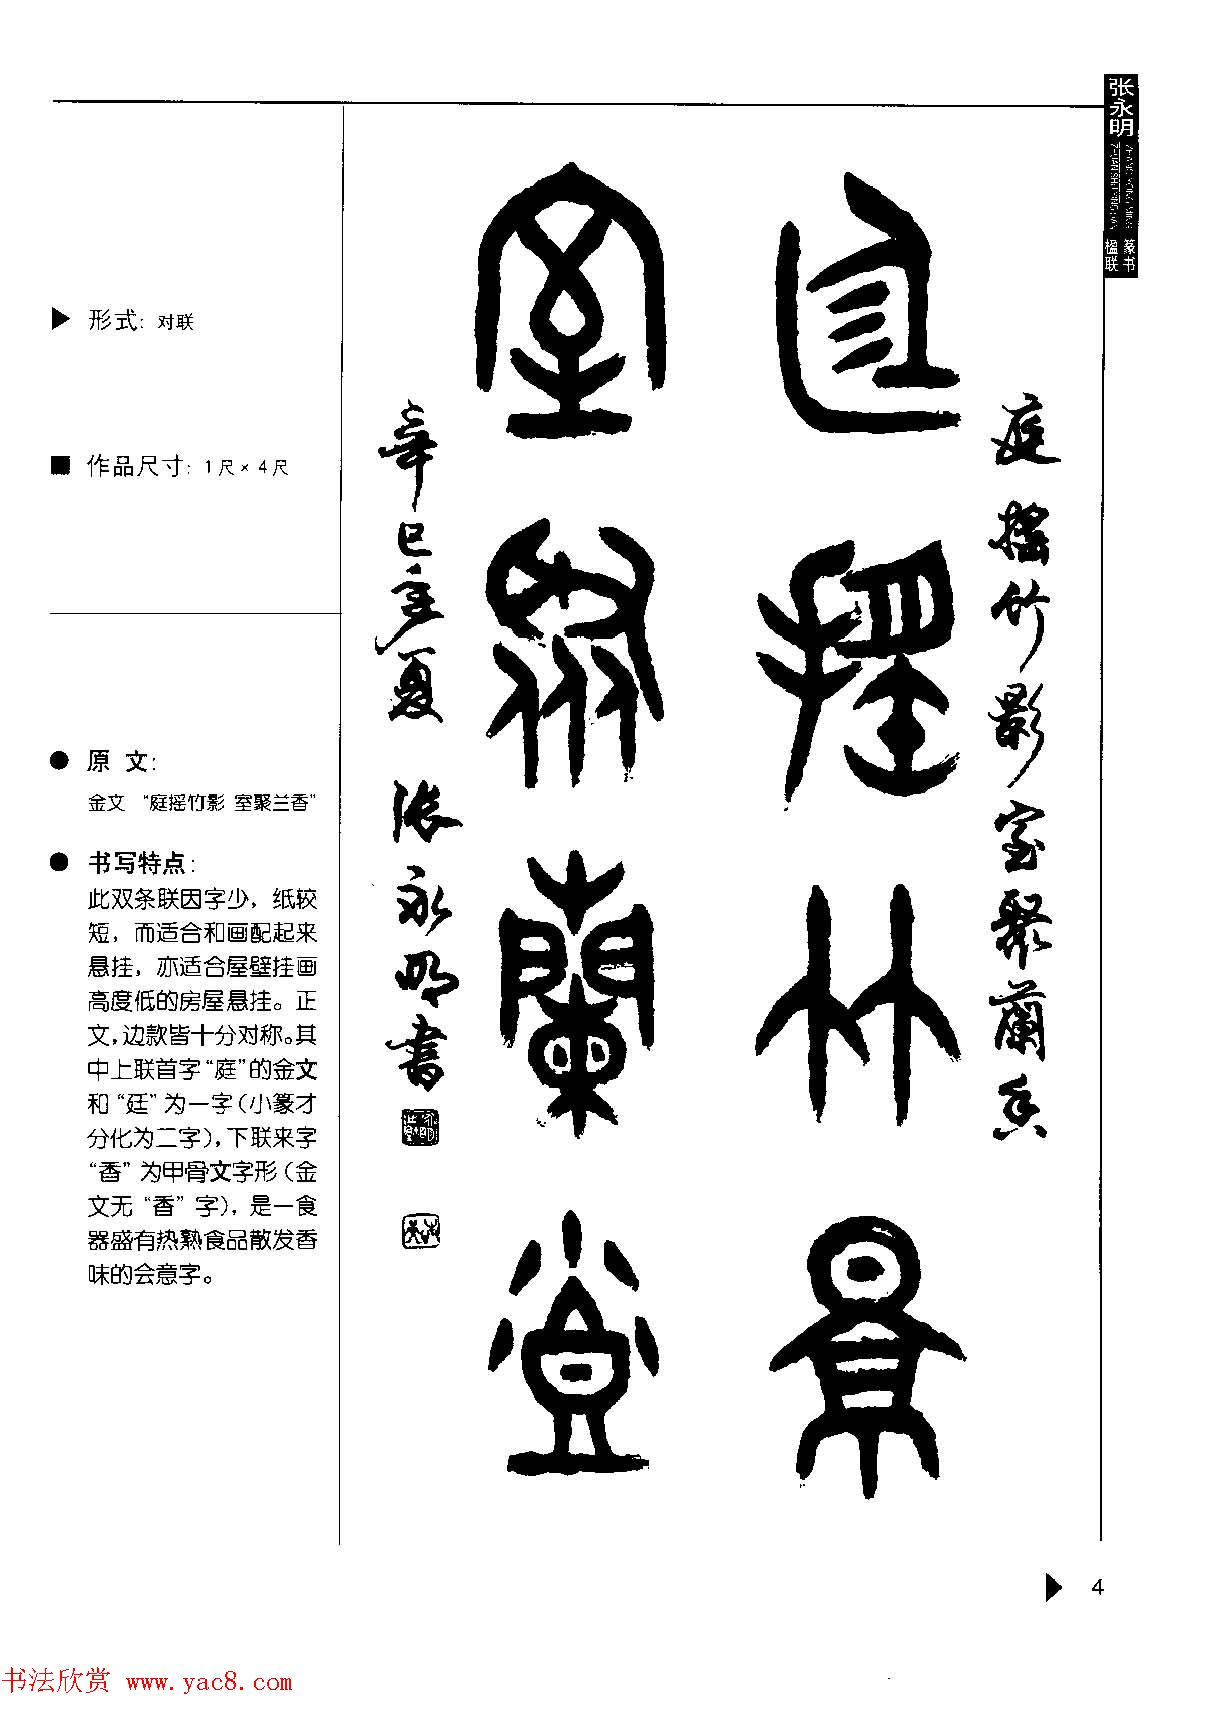 张永明
ZHANG YONG MING
ZHUAN SHU YING LIAN
篆书
楹联
形式：对联
作品尺寸：1尺×4尺
原 文：
金文 “庭摇竹影 室聚兰香”
书写特点：
此双条联因字少，纸较
短，而适合和画配起来
悬挂，亦适合屋壁挂画
高度低的房屋悬挂。正
文，边款皆十分对称。其
中上联首字“庭”的金文
和“廷”为一字（小篆才
分化为二字），下联来字
“香”为甲骨文字形（金
文无“香”字），是一食
器盛有热熟食品散发香
味的会意字。
庭摇竹影室聚蘭香
庭摇竹影
室聚蘭香
辛巳年夏 张永明书
4
书法欣赏 www.yac8.com